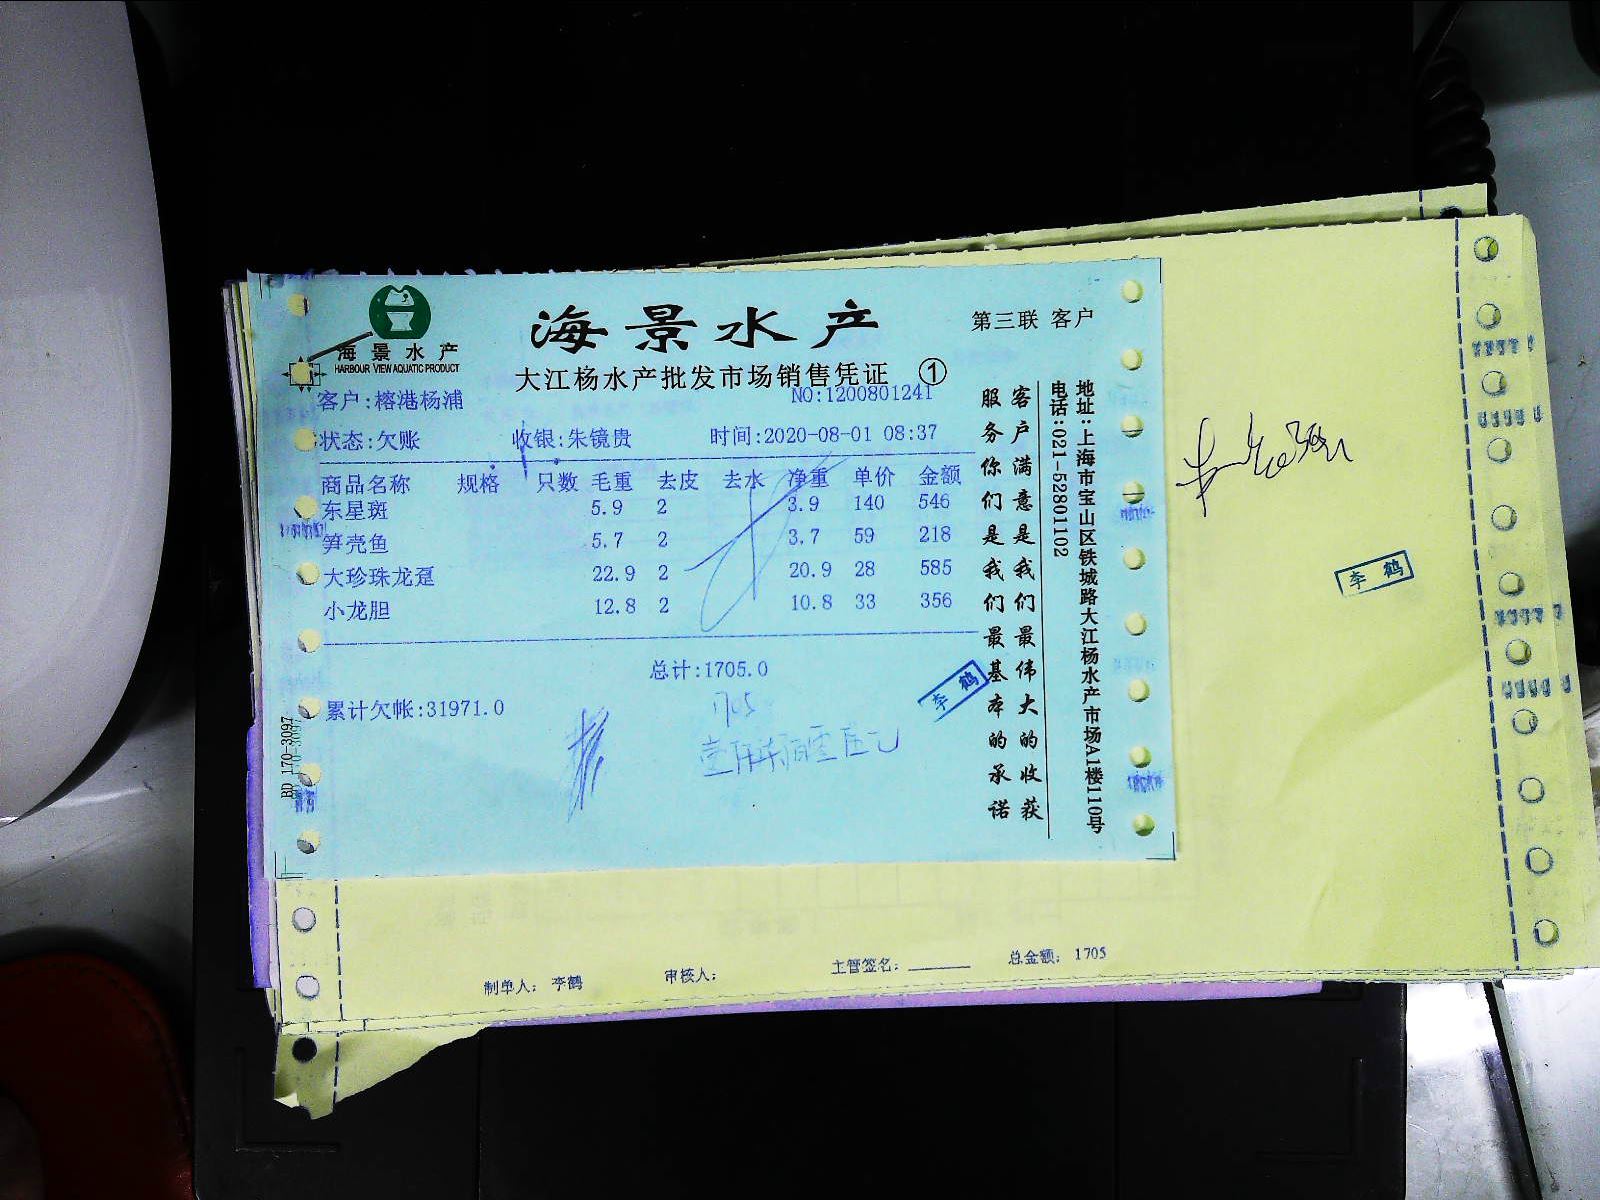 海景水产
HARBOUR VIEW AQUATIC PRODUCT
海景水产
第三联 客户
大江杨水产批发市场销售凭证 ①
客户:榕港杨浦
NO:1200801241
状态:欠账 收银:朱镜贵 时间:2020-08-01 08:37
商品名称 规格 只数 毛重 去皮 去水 净重 单价 金额
东星斑 5.9 2 3.9 140 546
笋壳鱼 5.7 2 3.7 59 218
大珍珠龙趸 22.9 2 20.9 28 585
小龙胆 12.8 2 10.8 33 356
总计:1705.0
累计欠帐:31971.0
1705
李鹤
BD 170-3097
客户满意是我们最伟大的收获
服务你们是我们最基本的承诺
地址:上海市宝山区铁城路大江杨水产市场A1楼110号
电话:021-52801102
李鹤
制单人: 李鹤 审核人: 主管签名: 总金额: 1705